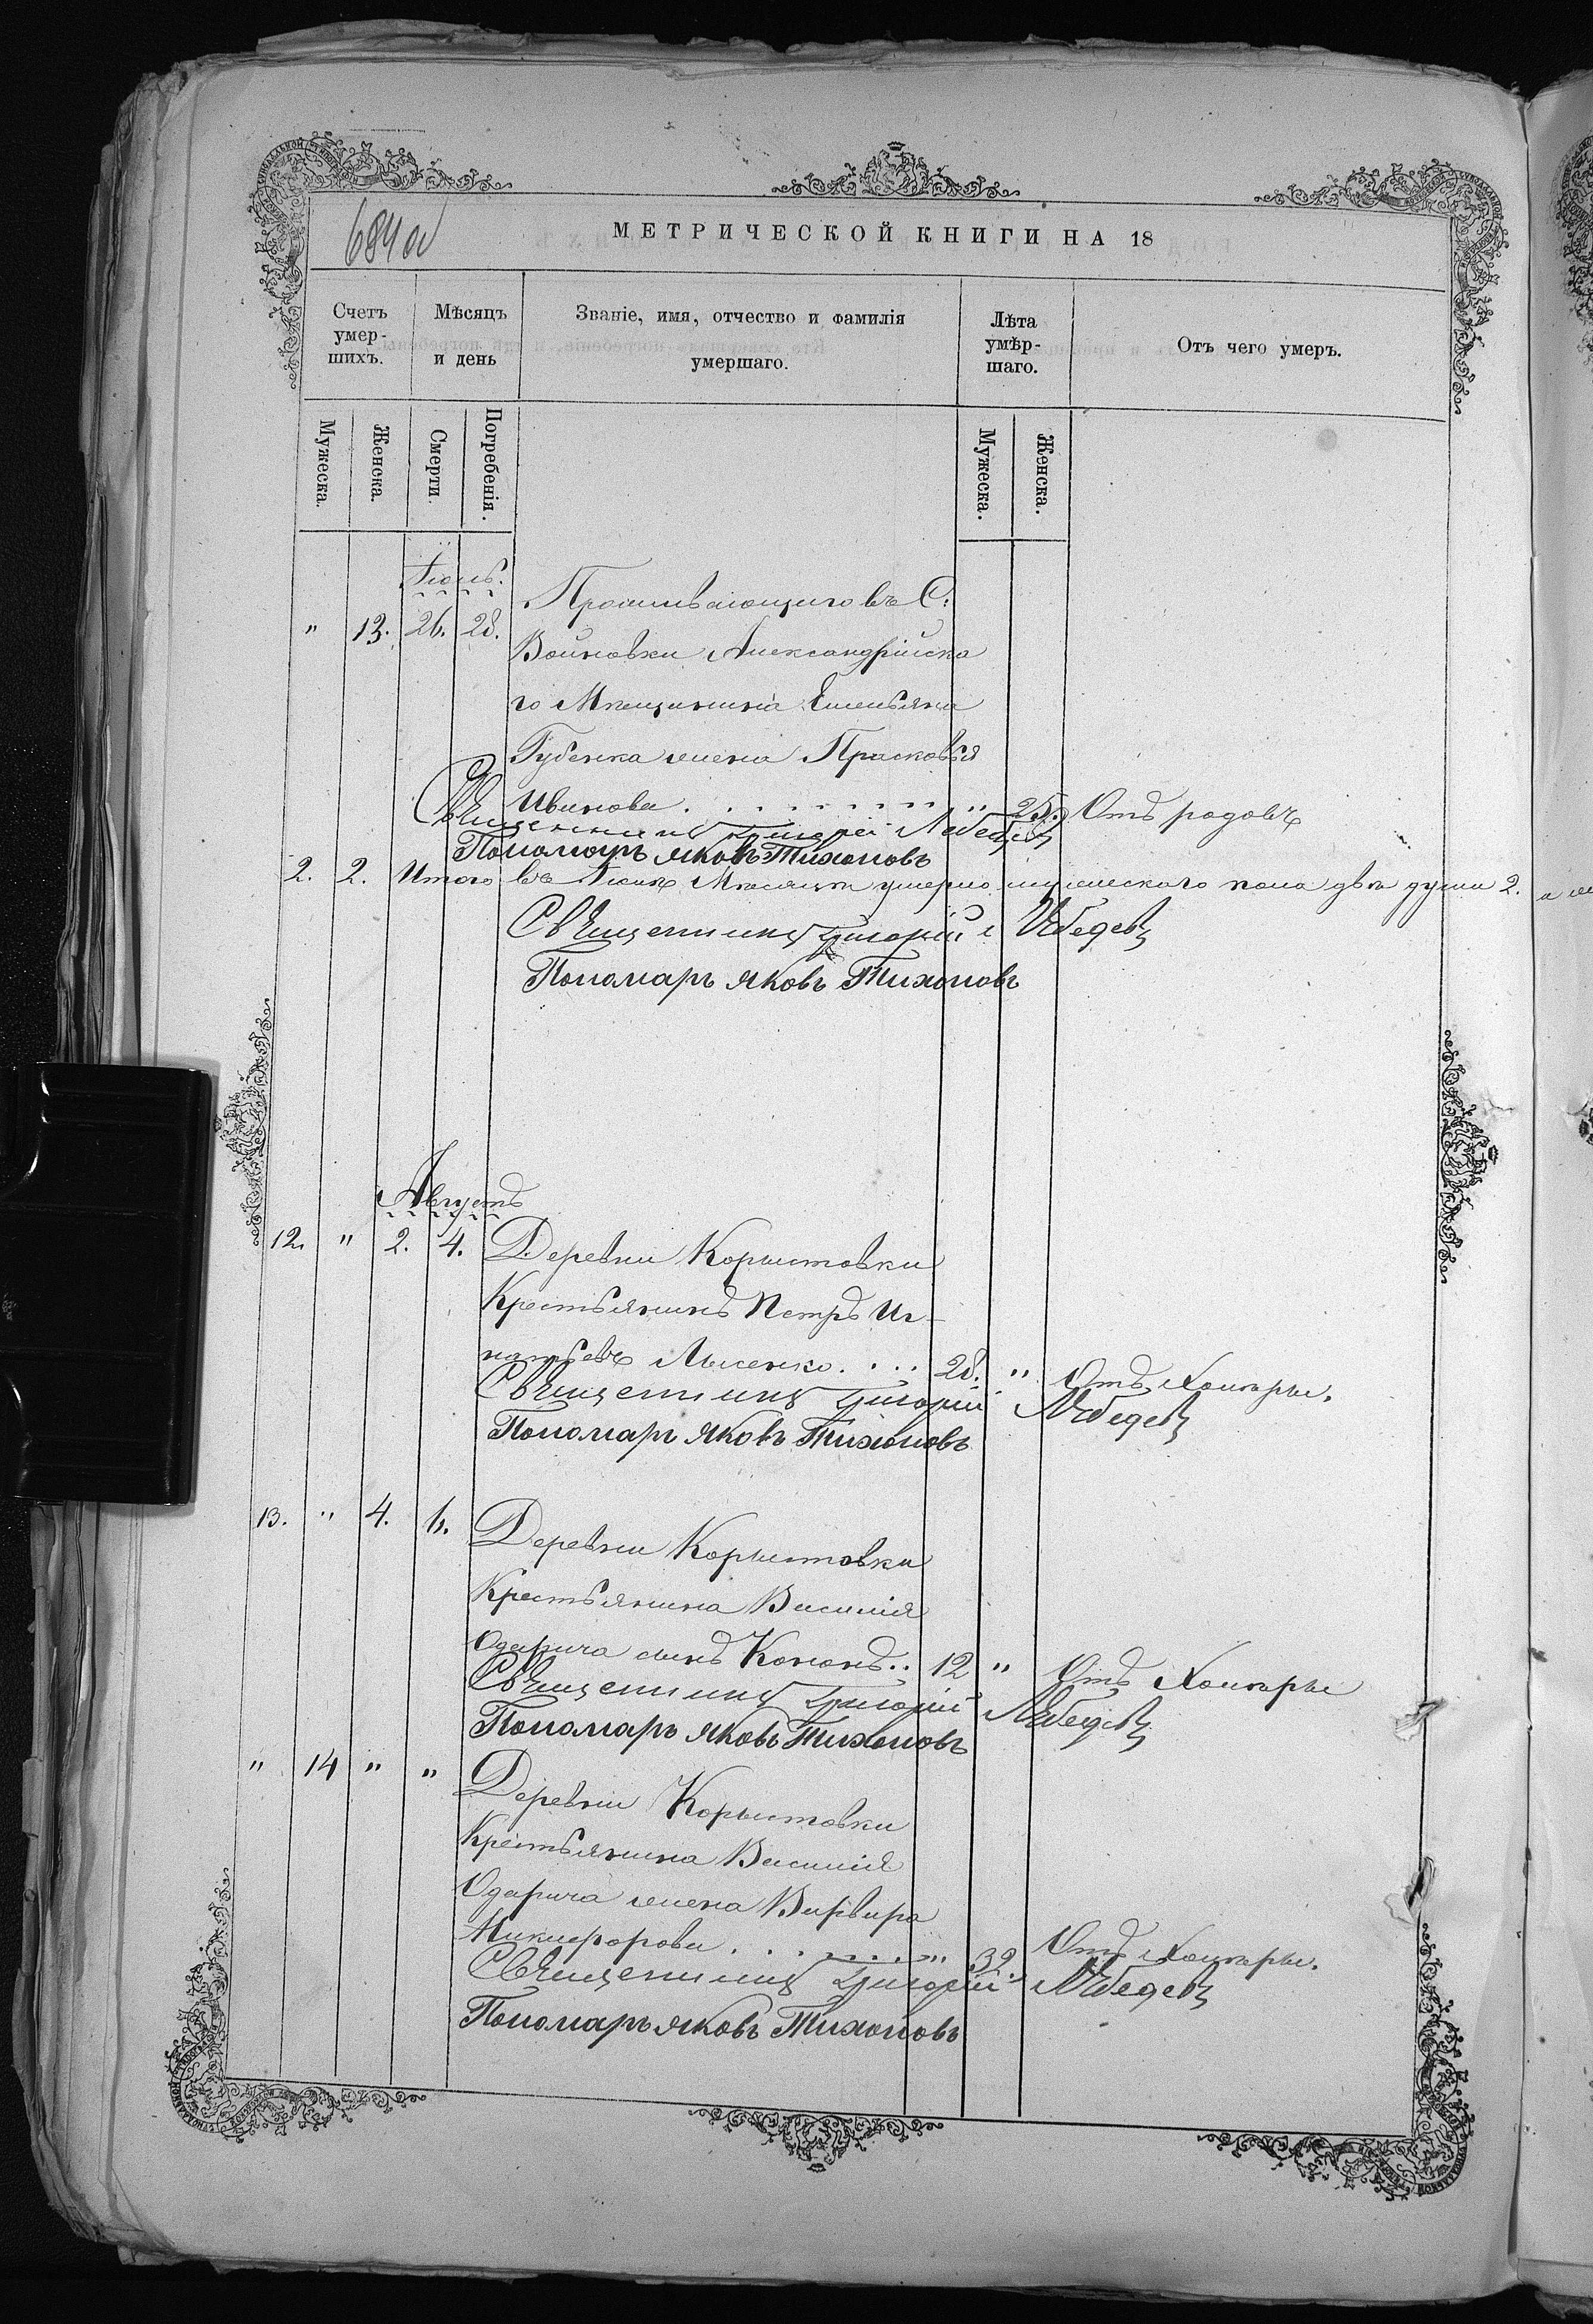 684 об
МЕТРИЧЕСКОЙ КНИГИ НА 18
Счетъ умер-шихъ. Мѣсяцъ и день Званіе, имя, отчество и фамилія умершаго. Лѣта умѣр-шаго. Отъ чего умеръ.
Мужеска. Женска. Смерти. Погребенія. Мужеска. Женска.
Іюль.
Проживающаго въ С.
" 13. 26. 28.
Войновки Александрійска
го Мѣщанина Емельяна
Губенка жена Прасковья
Иванова . . . . . . . . . " 25. Отъ родовъ
Священникъ Григорій Лебедевъ
Пономарь Яковъ Тихоновъ
2. 2. Итого въ Іюлѣ Мѣсяцѣ умерло мужескаго пола два души 2.
Священникъ Григорій Лебедевъ
Пономарь Яковъ Тихоновъ
Августъ
12. " 2. 4. Деревни Корыстовки
Крестьянинъ Петръ Иг-
натьевъ Лысенко . . . . 28. " Отъ Холеры.
Священникъ Григорій Лебедевъ
Пономарь Яковъ Тихоновъ
13. " 4. 6. Деревни Корыстовки
Крестьянина Василія
Одарича сынъ Кононъ . . 12 " Отъ Холеры
Священникъ Григорій Лебедевъ
Пономарь Яковъ Тихоновъ
" 14 " " Деревни Корыстовки
Крестьянина Василія
Одарича жена Варвара
Никифорова . . . . . . " 32. Отъ Холеры.
Священникъ Григорій Лебедевъ
Пономарь Яковъ Тихоновъ